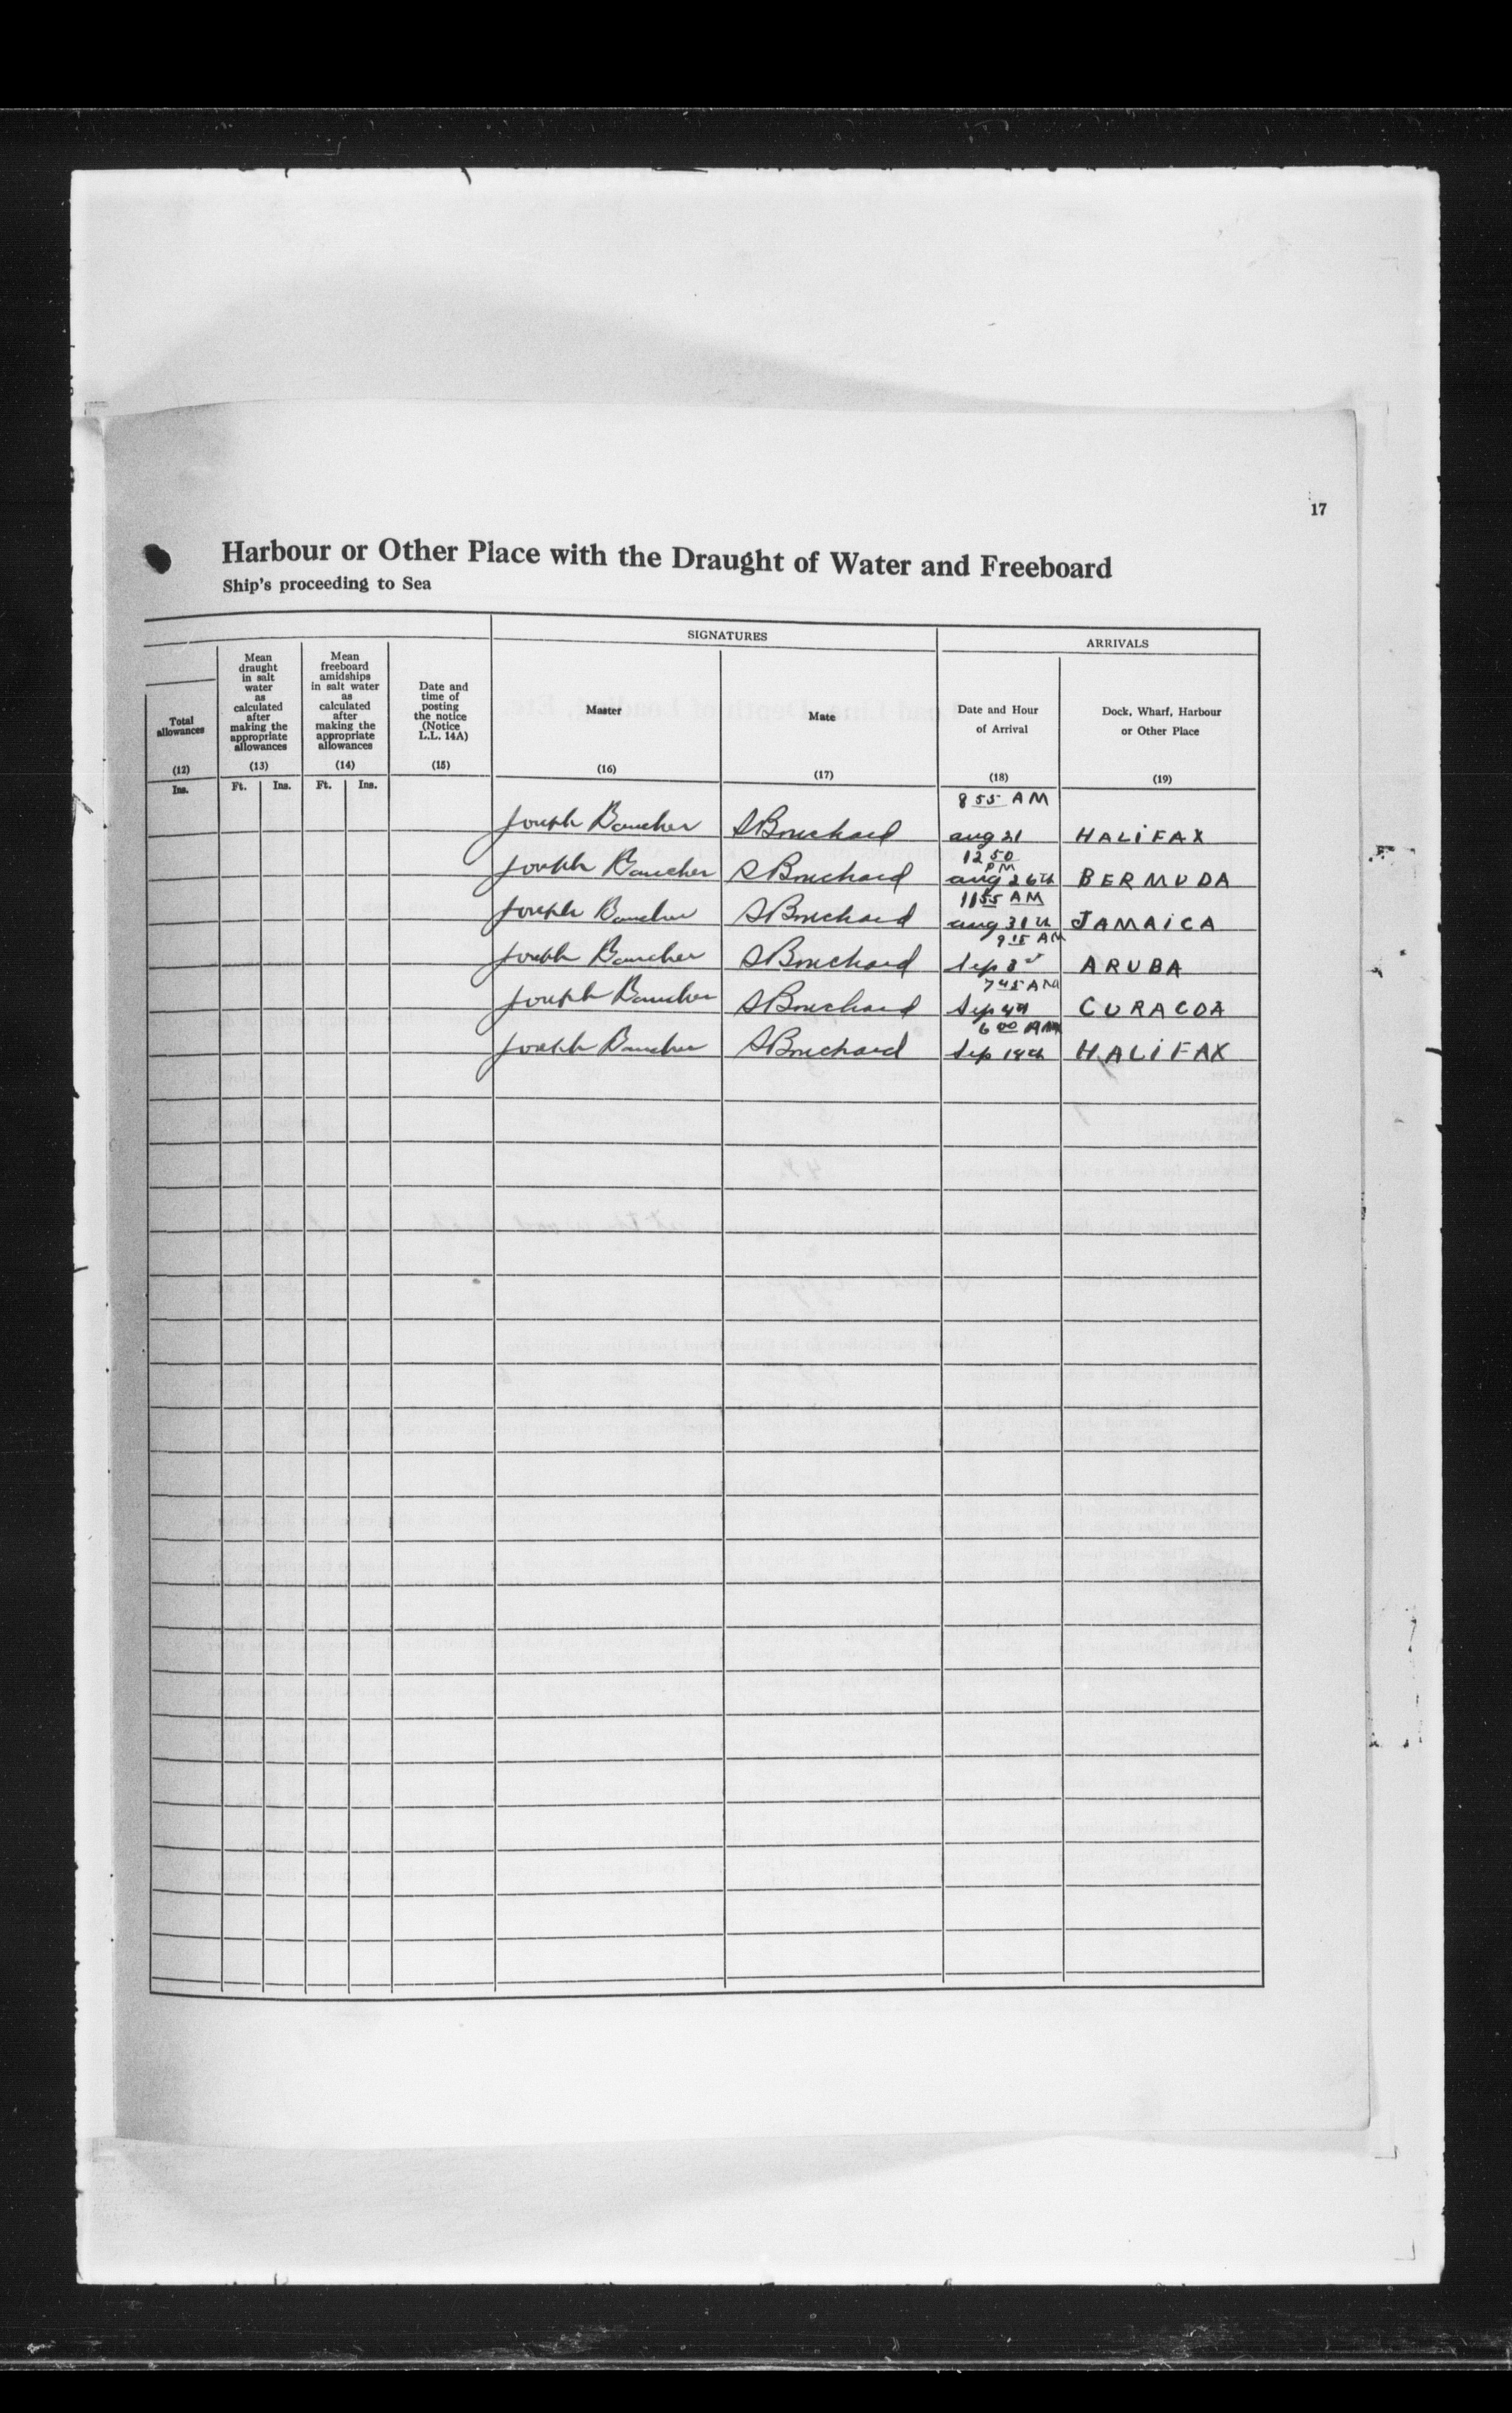 17
Harbour or Other Place with the Draught of Water and Freeboard
Ship's proceeding to Sea
SIGNATURES
ARRIVALS
Total allowances
(12)
Ins.
Mean draught in salt water as calculated after making the appropriate allowances
(13)
Ft. Ins.
Mean freeboard amidships in salt water as calculated after making the appropriate allowances
(14)
Ft. Ins.
Date and time of posting the notice (Notice L.L. 14A)
(15)
Master
(16)
Mate
(17)
Date and Hour of Arrival
(18)
Dock, Wharf, Harbour or Other Place
(19)
8 55 AM
Joseph Boucher S Bouchard aug 21 HALIFAX
12 50 PM
Joseph Boucher S Bouchard aug 26th BERMUDA
11 55 AM
Joseph Boucher S Bouchard aug 31th JAMAICA
9 15 AM
Joseph Boucher S Bouchard Sep 3 ARUBA
7 45 AM
Joseph Boucher S Bouchard Sep 4th CURACOA
6 00 AM
Joseph Boucher S Bouchard Sep 18th HALIFAX